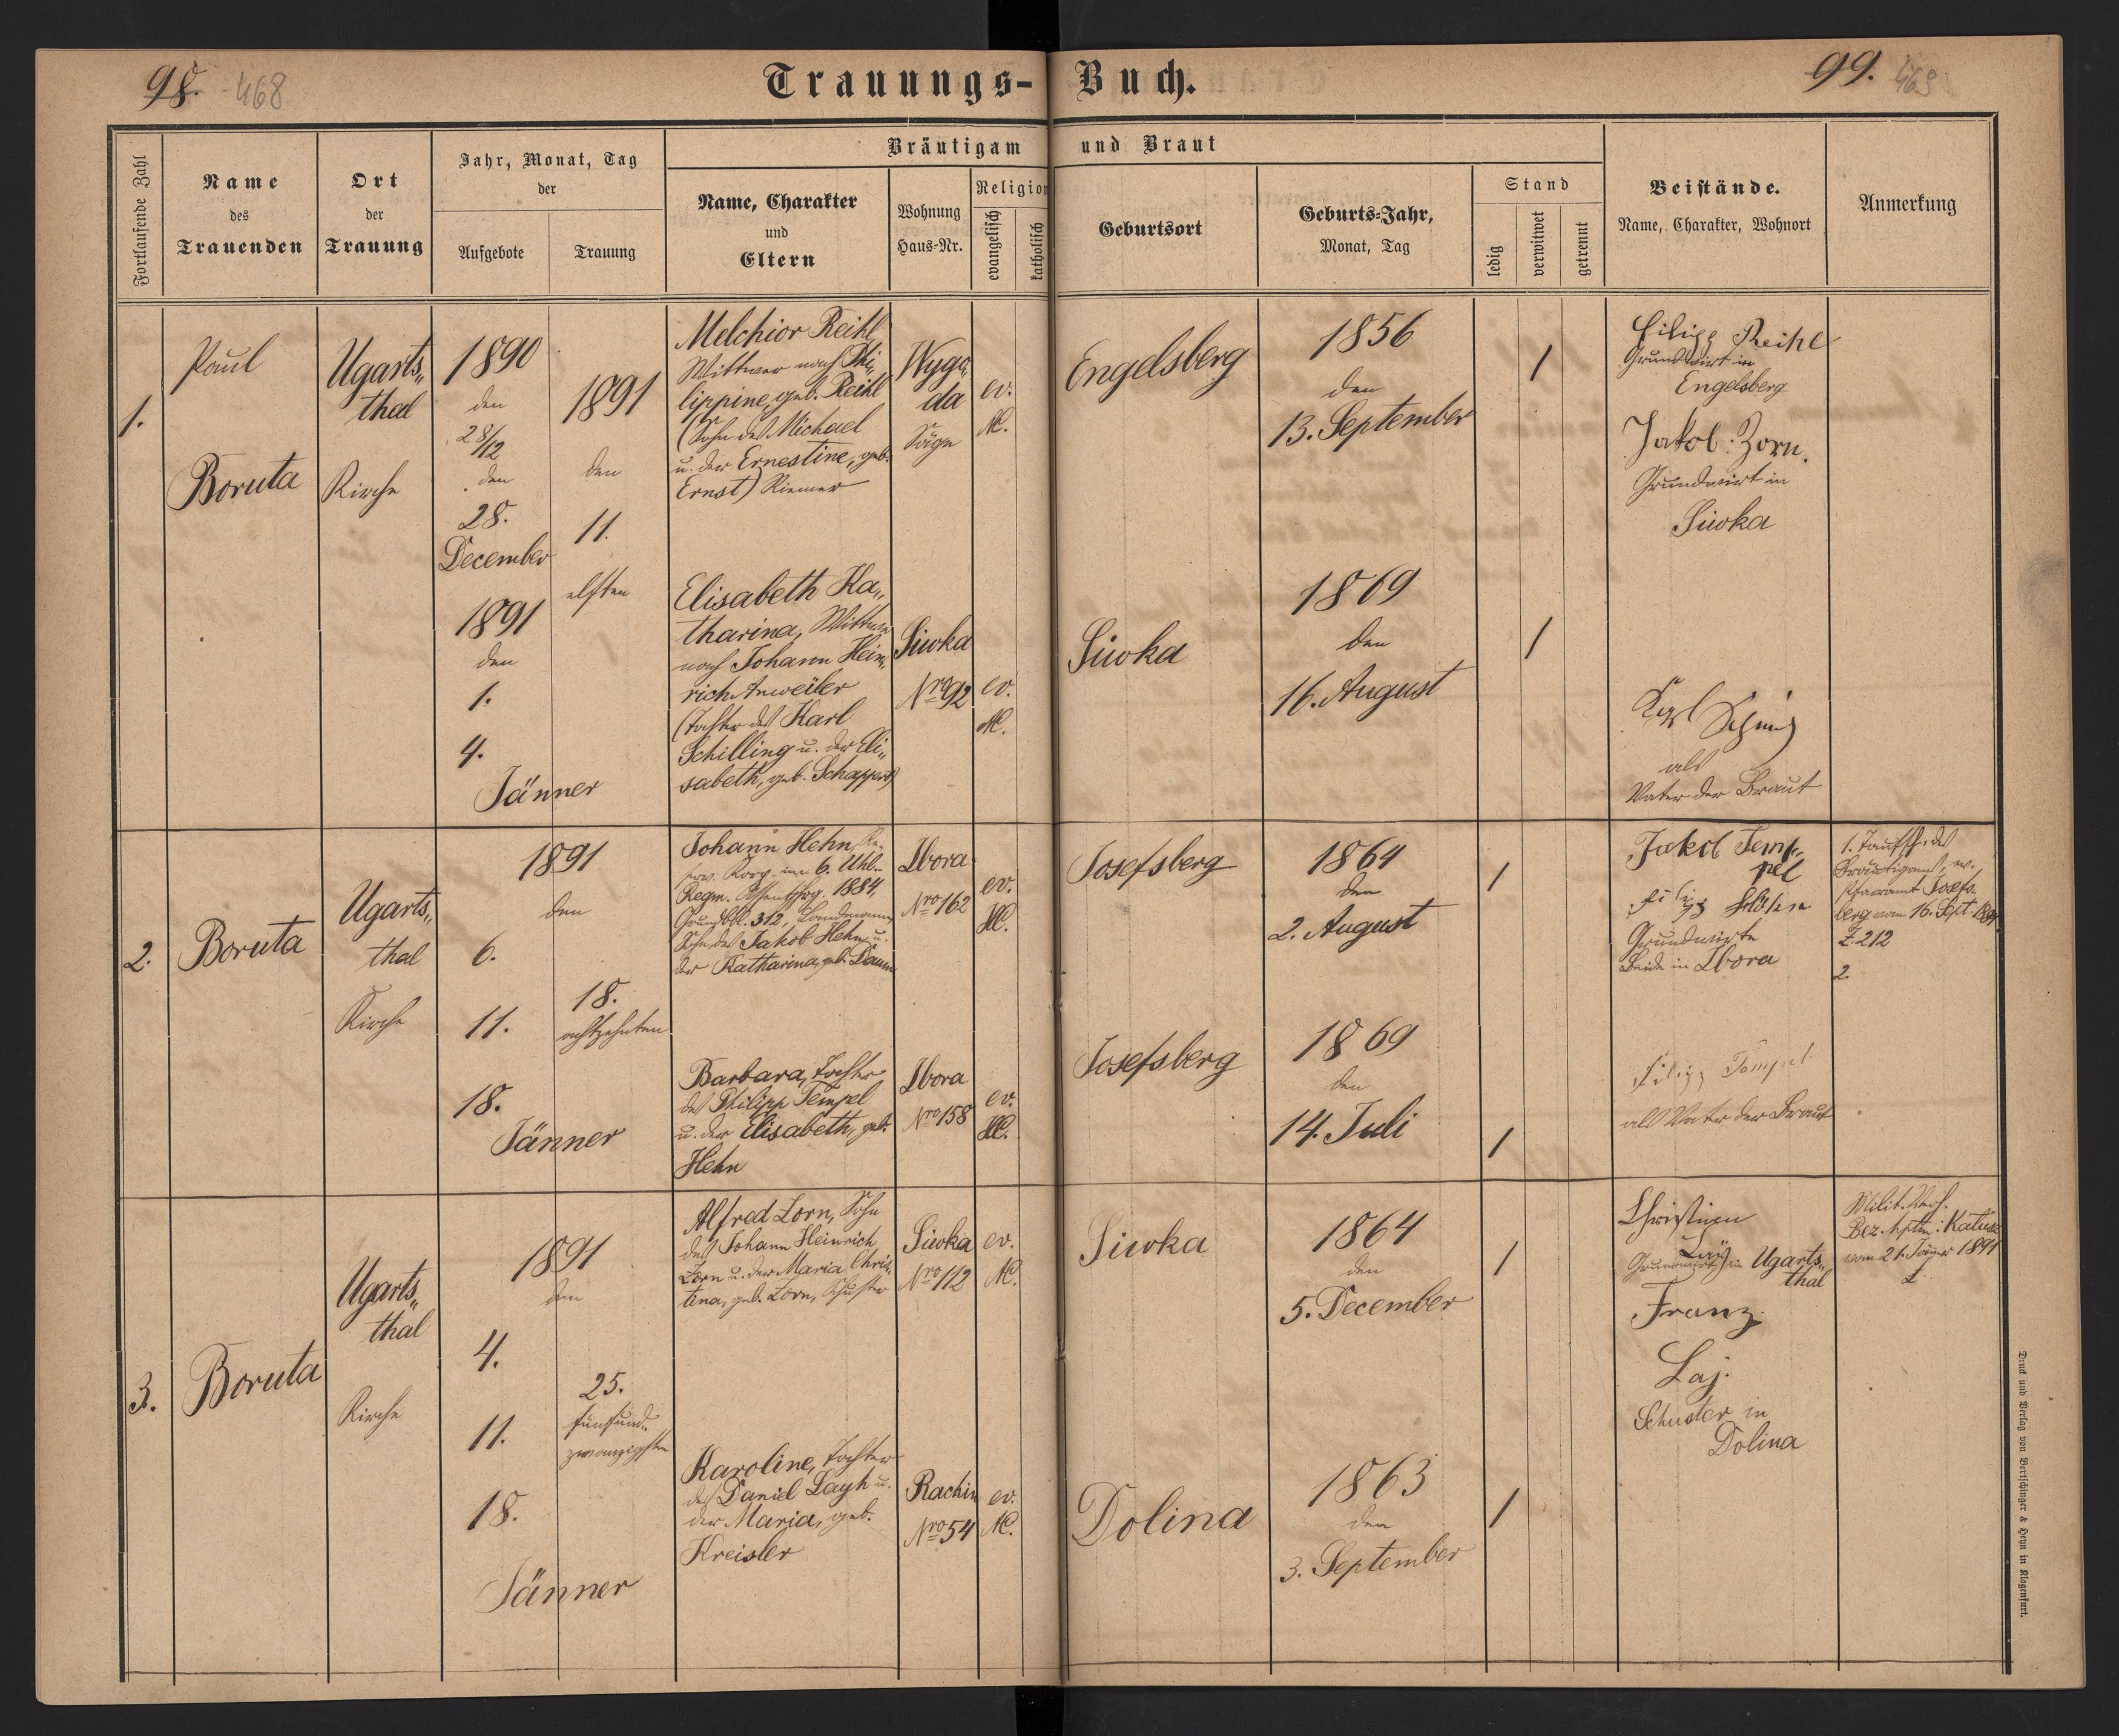 98. 468
Trauungs-Buch.
99. 469
Fortlaufende Zahl
Name
des
Trauenden
Ort
der
Trauung
Jahr, Monat, Tag
der
Aufgebote
Trauung
Bräutigam und Braut
Name, Charakter
und
Eltern
Wohnung
Haus-Nr.
Religion
evangelisch
katholisch
Geburtsort
Geburts-Jahr,
Monat, Tag
Stand
ledig
verwitwet
getrennt
Beistände.
Name, Charakter, Wohnort
Anmerkung
1.
Paul
Boruta
Ugarts„
thal
Kirche
1890
den
28/12
den
28.
December
1891
den
1.
4.
Jänner
1891
den
11.
elften
Melchior Reihl
Wittwer nach Phi„
lippine, geb. Reihl
(Sohn des Michael
u. der Ernestine, geb.
Ernst) Riemer
Wygo„
da
Säge
ev.
Engelsberg
1856
den
13. September
/
Filipp Reihl
Grundwirt in
Engelsberg
Jakob Zorn.
Grundwirt in
Siwka
Elisabeth Ka„
tharina, Wittwe
nach Johann Hein„
rich Anweiler
(Tochter des Karl
Schilling u. der Eli„
sabeth, geb. Schappert)
Siwka
Nro 92
ev.
Siwka
1869
den
16. August
/
Karl
als
Vater der Braut
2.
Boruta
Ugarts„
thal
Kirche
1891
den
6.
11.
18.
Jänner
18.
achtzehnten
Johann Hehn, Re-
im 6. Uhl.
Regm. 1884,
Grundbbl. 312, Landmann
Sohn des Jakob Hehn u.
der Katharina, geb. Daum
Zbora
Nro 162
ev.
H.
Josefsberg
1864
den
2. August
/
Jakob Tem-
pel
Filipp
Grundwirte
Beide in Zbora
1. Taufsch. des
Bräutigams, ev.
Pfarramt Josefs„
berg vom 16. Sept.
Z. 212
2.
Barbara, Tochter
des Philipp Tempel
u. der Elisabeth, geb.
Hehn
Zbora
Nro 158
ev.
H.
Josefsberg
1869
den
14. Juli
/
Filipp Tempel
als Vater der Braut
3.
Boruta
Ugarts„
thal
Kirche
1891
den
4.
11.
18.
Jänner
25.
fünfund„
zwanzigsten
Alfred Zorn, Sohn
des Johann Heinrich
Zorn u. der Maria Chris„
tina, geb. Zorn, Schuster
Siwka
Nro 112
ev.
Siwka
1864
den
5. December
/
Christian
Laÿ
Grundwirt in Ugarts„
thal
Franz
Laj.
Schuster in
Dolina
Milit.
Bez. Kalusz
vom 21. Jänner 1891
Karoline, Tochter
des Daniel Layh u.
der Maria, geb.
Kreisler
Rachin
Nro 54
ev.
Dolina
1863
den
3. September
/
Druck und Verlag von Bertschinger & Heyn in Klagenfurt.